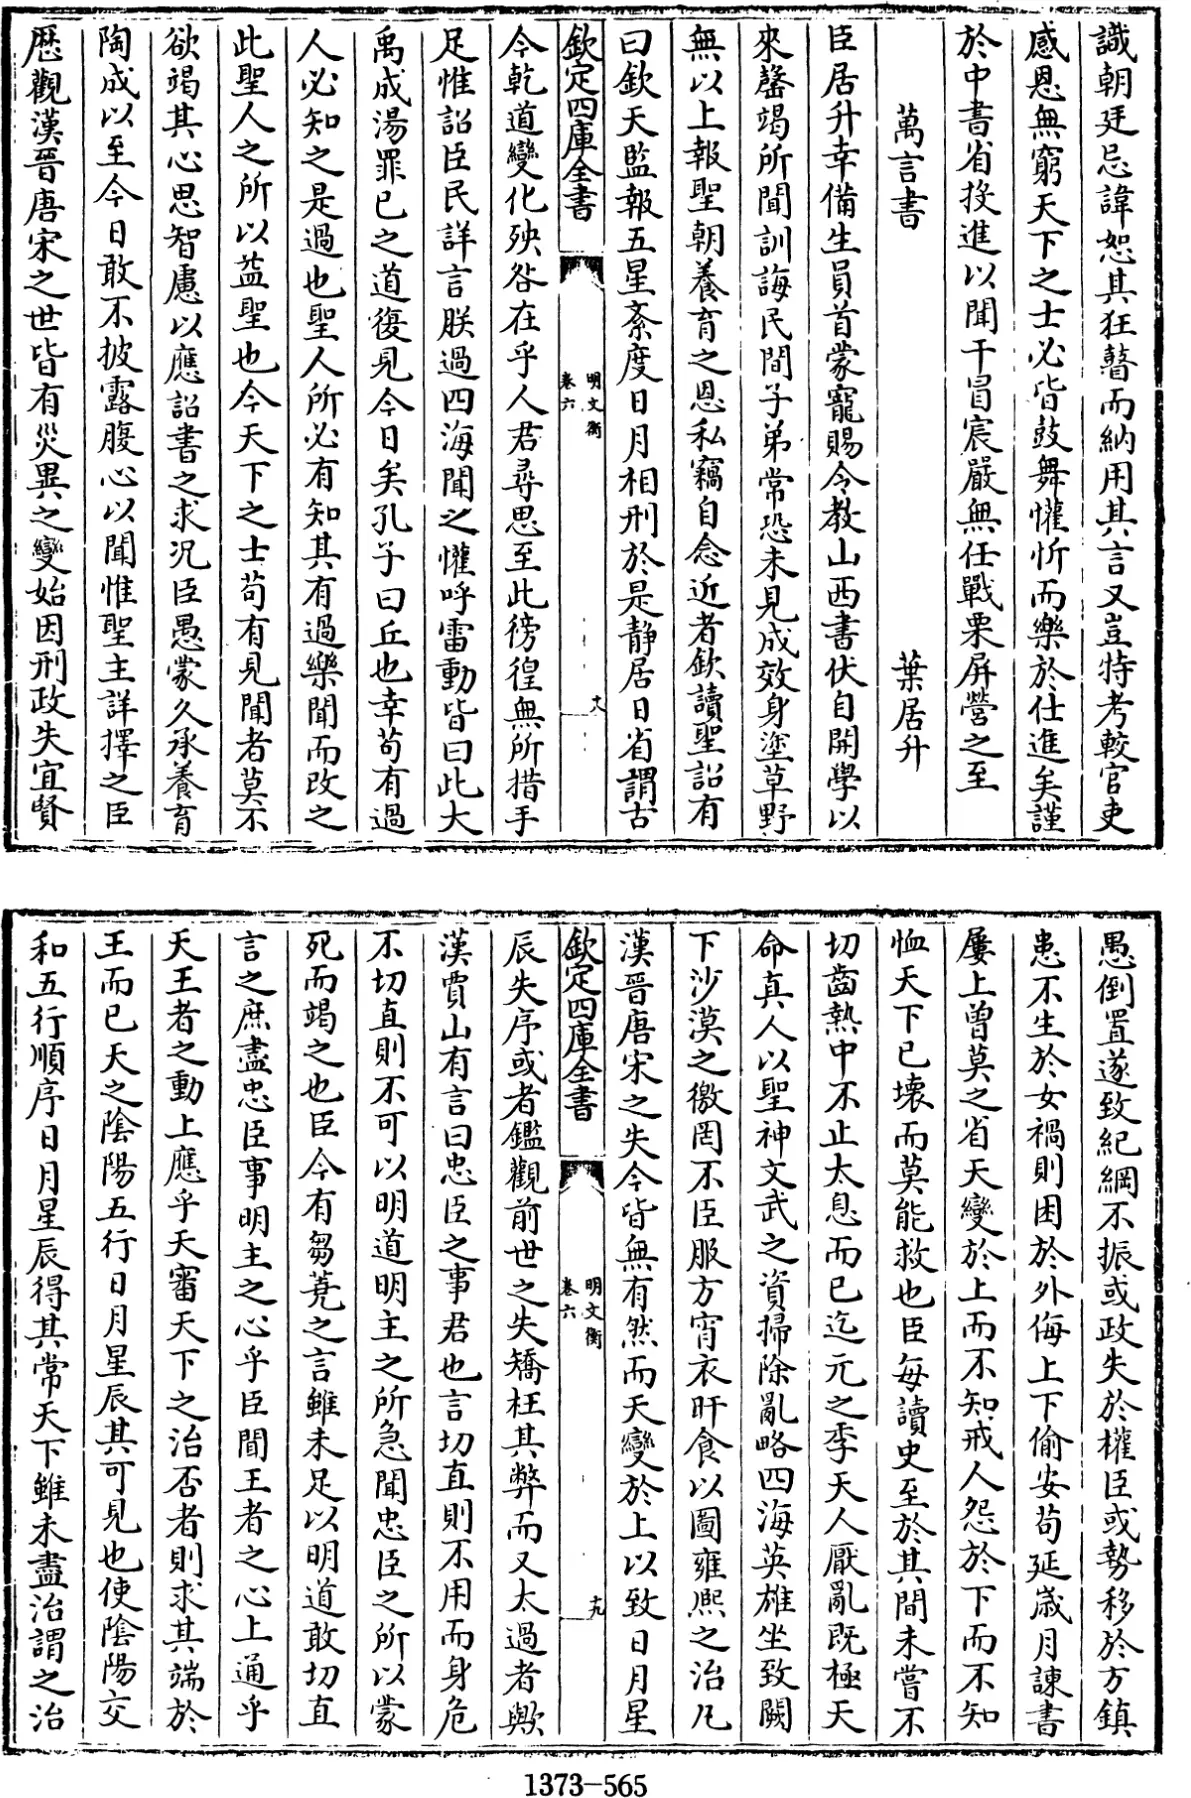 識朝廷忌諱恕其狂瞽而納用其言又豈特考較官吏
感恩無窮天下之士必皆鼓舞懽忻而樂於仕進矣謹
於中書省投進以聞干冒宸嚴無任戰栗屏營之至
萬言書 葉居升
臣居升幸備生員首蒙寵賜令教山西書伏自開學以
來罄竭所聞訓誨民間子弟常恐未見成效身塗草野
無以上報聖朝養育之恩私竊自念近者欽讀聖詔有
曰欽天監報五星紊度日月相刑於是靜居日省謂古
欽定四庫全書
明文衡
卷六
十八
今乾道變化殃咎在乎人君尋思至此徬徨無所措手
足惟詔臣民詳言朕過四海聞之懽呼雷動皆曰此大
禹成湯罪已之道復見今日矣孔子曰丘也幸茍有過
人必知之是過也聖人所必有知其有過樂聞而改之
此聖人之所以益聖也今天下之士茍有見聞者莫不
欲竭其心思智慮以應詔書之求况臣愚蒙久承養育
陶成以至今日敢不披露腹心以聞惟聖主詳擇之臣
歷觀漢晉唐宋之世皆有災異之變始因刑政失宜賢
愚倒置遂致紀綱不振或政失於權臣或勢移於方鎮
患不生於女禍則困於外侮上下偷安茍延歲月諫書
屢上曾莫之省天變於上而不知戒人怨於下而不知
恤天下已壞而莫能救也臣每讀史至於其間未嘗不
切齒熱中不止太息而已迄元之季天人厭亂既極天
命真人以聖神文武之資掃除亂略四海英雄坐致闕
下沙漠之徼罔不臣服方宵衣旰食以圖雍熙之治凡
漢晉唐宋之失今皆無有然而天變於上以致日月星
欽定四庫全書
明文衡
卷六
十九
辰失序或者鑑觀前世之失矯枉其弊而又太過者歟
漢賈山有言曰忠臣之事君也言切直則不用而身危
不切直則不可以明道明主之所急聞忠臣之所以蒙
死而竭之也臣今有芻蕘之言雖未足以明道敢切直
言之庶盡忠臣事明主之心乎臣聞王者之心上通乎
天王者之動上應乎天審天下之治否者則求其端於
王而已天之陰陽五行日月星辰其可見也使陰陽交
和五行順序日月星辰得其常天下雖未盡治謂之治
1373-565